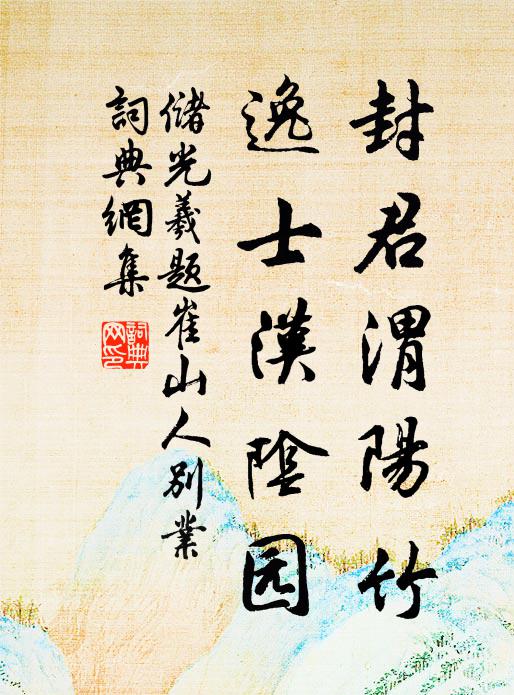 封君渭陽竹
逸士漢陰园
儲光羲題崔山人別業
詞典網集
詞典網印